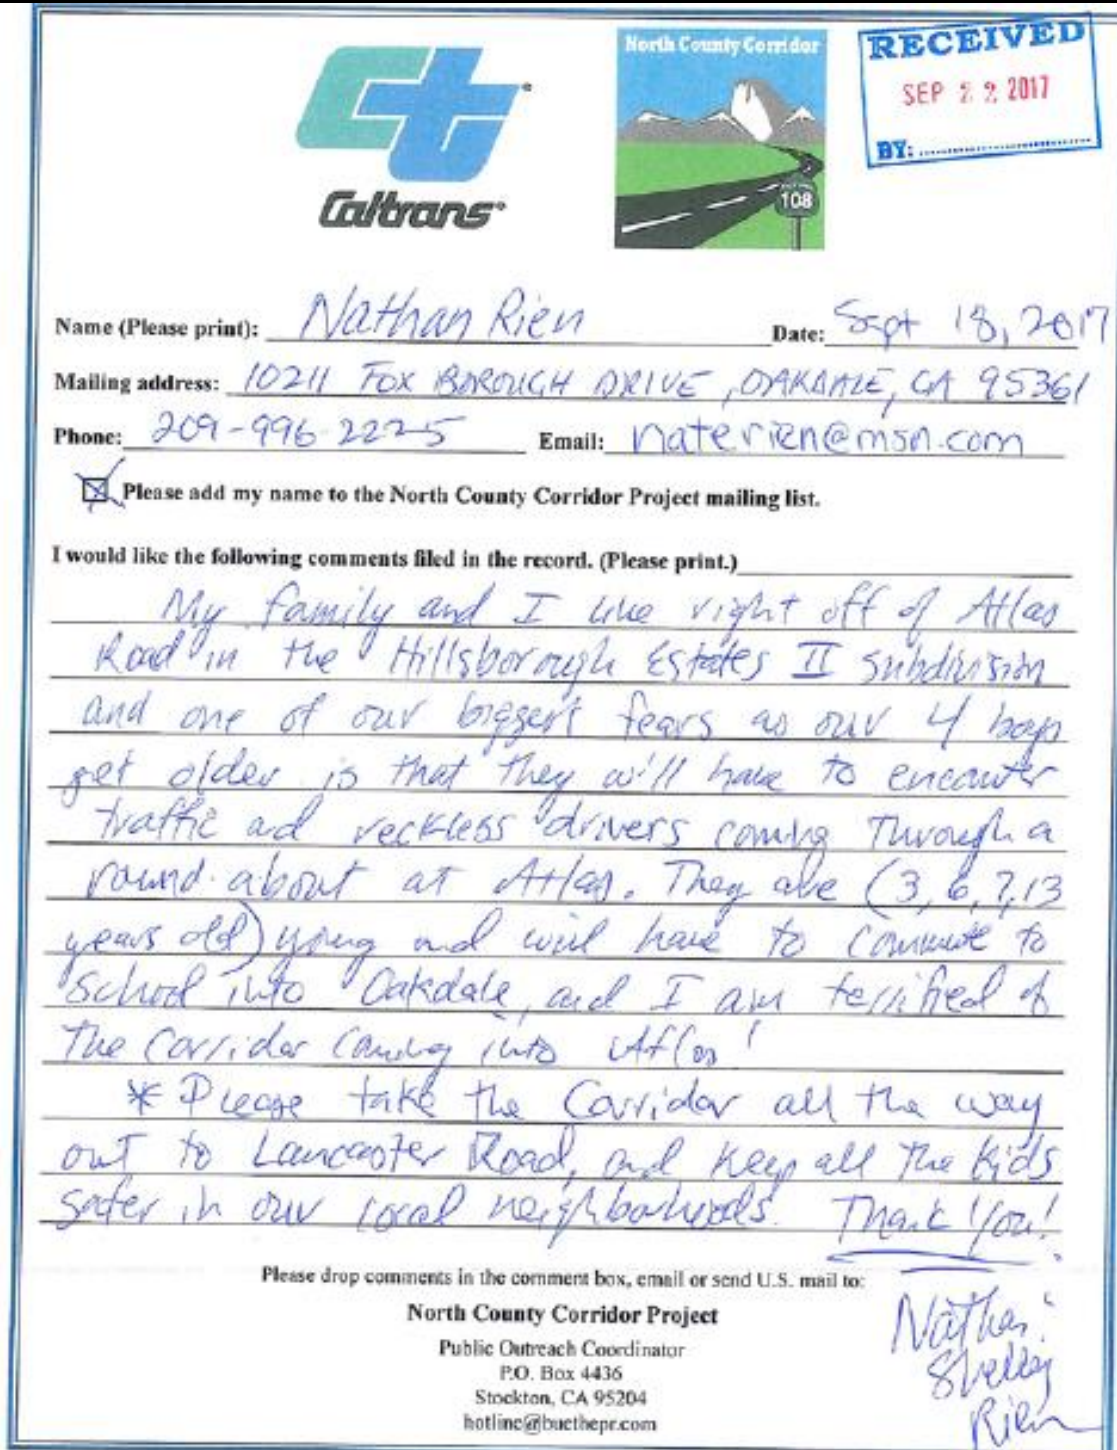 Caltrans
North County Corridor
108
RECEIVED
SEP 22 2017
BY:
Name (Please print): Nathan Rien Date: Sept 18, 2017
Mailing address: 10211 FOX BOROUGH DRIVE, OAKDALE, CA 95361
Phone: 209-996-2225 Email: naterien@msn.com
Please add my name to the North County Corridor Project mailing list.
I would like the following comments filed in the record. (Please print.)
My family and I live right off of Atlas
Road in the Hillsborough Estates II subdivision
and one of our biggest fears as our 4 boys
get older is that they will have to encounter
traffic and reckless drivers coming through a
round-about at Atlas. They are (3, 6, 7, 13
years old) young and will have to commute to
School into Oakdale, and I am terrified of
The Corridor coming into Atlas!
* Please take the Corridor all the way
out to Lancaster Road, and keep all the kids
safer in our local neighborhoods. Thank You!
Please drop comments in the comment box, email or send U.S. mail to:
North County Corridor Project
Public Outreach Coordinator
P.O. Box 4436
Stockton, CA 95204
hotline@buethepr.com
Nathan
Shelley
Rien